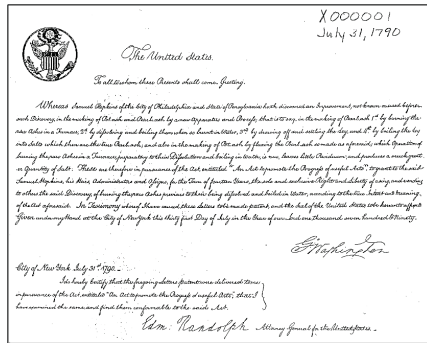 X000001
July 31, 1790
The United States.
To all to whom these Presents shall come, Greeting.
Whereas Samuel Hopkins of the City of Philadelphia and State of Pensylvania hath discovered an Improvement, not known or used before
such Discovery, in the making of Pot ash and Pearl ash by a new Apparatus and Process, that is to say, in the making of Pearl ash 1st by burning the
raw Ashes in a Furnace, 2d by dissolving and boiling them when so burnt in Water, 3rd by drawing off and settling the Ley, and 4th by boiling the Ley
into Salts which then are the true Pearl ash; and also in the making of Pot ash by fluxing the Pearl ash so made as aforesaid; which Operation of
burning the raw Ashes in a Furnace, preparatory to their Dissolution and boiling in Water, is new, leaves little Residuum; and produces a much greater
Quantity of Salt: These are therefore in pursuance of the Act, entitled "An Act to promote the Progress of useful Arts", to grant to the said
Samuel Hopkins, his Heirs, Administrators and Assigns, for the Term of fourteen Years, the sole and exclusive Right and Liberty of using and vending
to others the said Discovery, of burning the raw Ashes previous to their being dissolved and boiled in Water, according to the true Intent and meaning
of the Act aforesaid. In Testimony whereof I have caused these Letters to be made patent, and the Seal of the United States to be hereunto affixed
Given under my Hand at the City of New York this thirty first Day of July in the Year of our Lord one thousand seven hundred & Ninety.
G Washington
City of New York July 31st 1790. -
I do hereby Certify that the foregoing Letters patent were delivered to me
in pursuance of the Act, entitled "An Act to promote the Progress of useful Arts"; that I
have examined the same, and find them conformable to the said Act.
Edm: Randolph Attorney General for the United States.